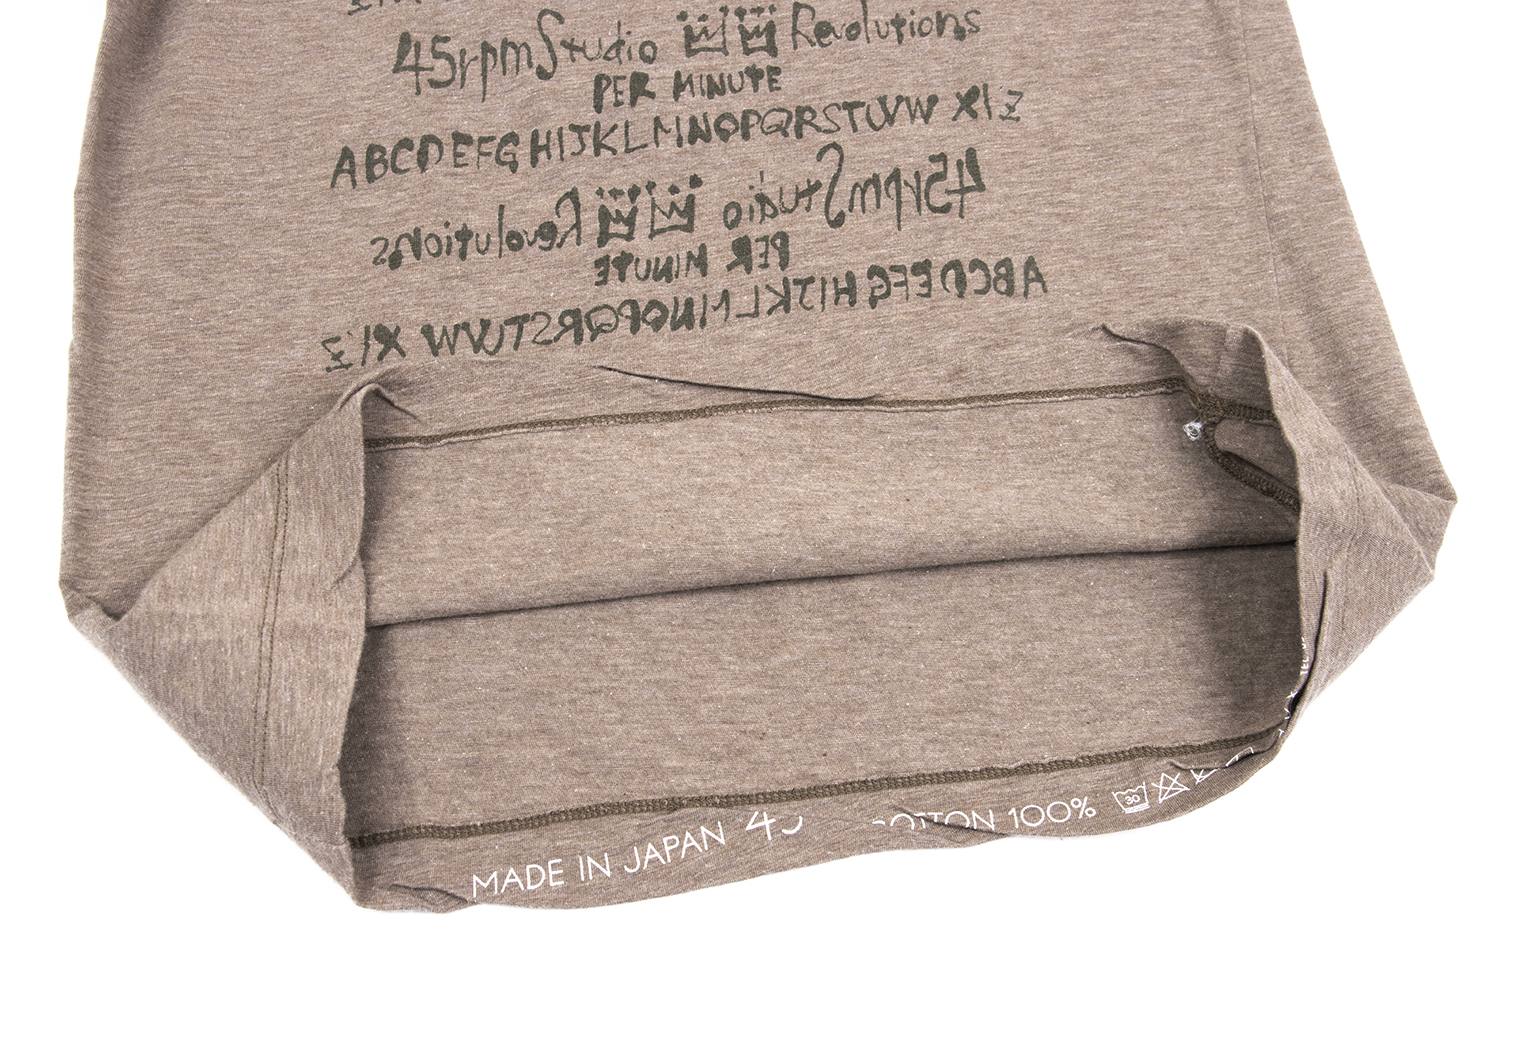 45rpm Studio Revolutions
PER MINUTE
ABCDEFGHIJKLMNOPQRSTUVW X|Z
45rpm Studio Revolutions
PER MINUTE
ABCDEFGHIJKLMNOPQRSTUVW X|Z
MADE IN JAPAN 45 COTTON 100% 30